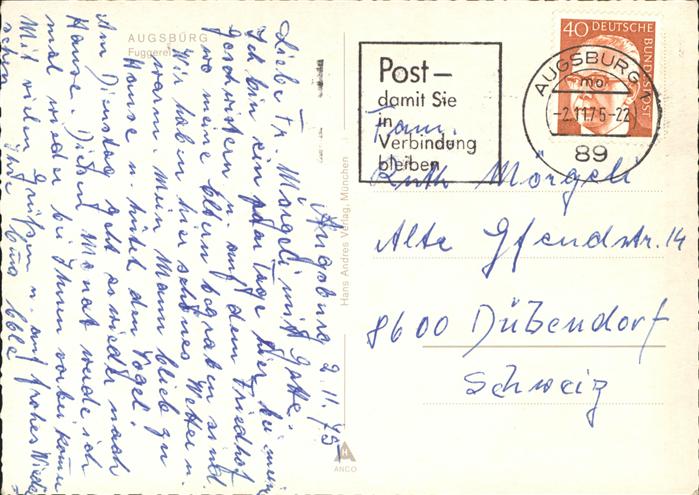 AUGSBURG
Fuggerei
Augsburg 2.11.75
Liebe Fr. Mörgeli mit Gatte.
Ich bin ein paar Tage hier bei mein
Geschwistern u. auf dem Friedhof
wo meine Eltern begraben sind.
Wir haben hier schönes Wetter u.
warm. Mein Mann blieb zu
Hause u. hütet den Vogel.
Am Dienstag geht es wieder nach
Hause. Diesen Monat werde ich
mal wieder bei Ihnen vorbei komm
Mit vielen Grüßen u. auf frohes Wieder
sehen Ihre
Hans Andres Verlag, München
ANCO
Post –
damit Sie
in
Verbindung
bleiben
40 DEUTSCHE
BUNDESPOST
AUGSBURG 1
mo
-2.11.75-22
89
Frau.
Ruth Mörgeli
Alte Gfendstr. 14
8600 Dübendorf
Schweiz